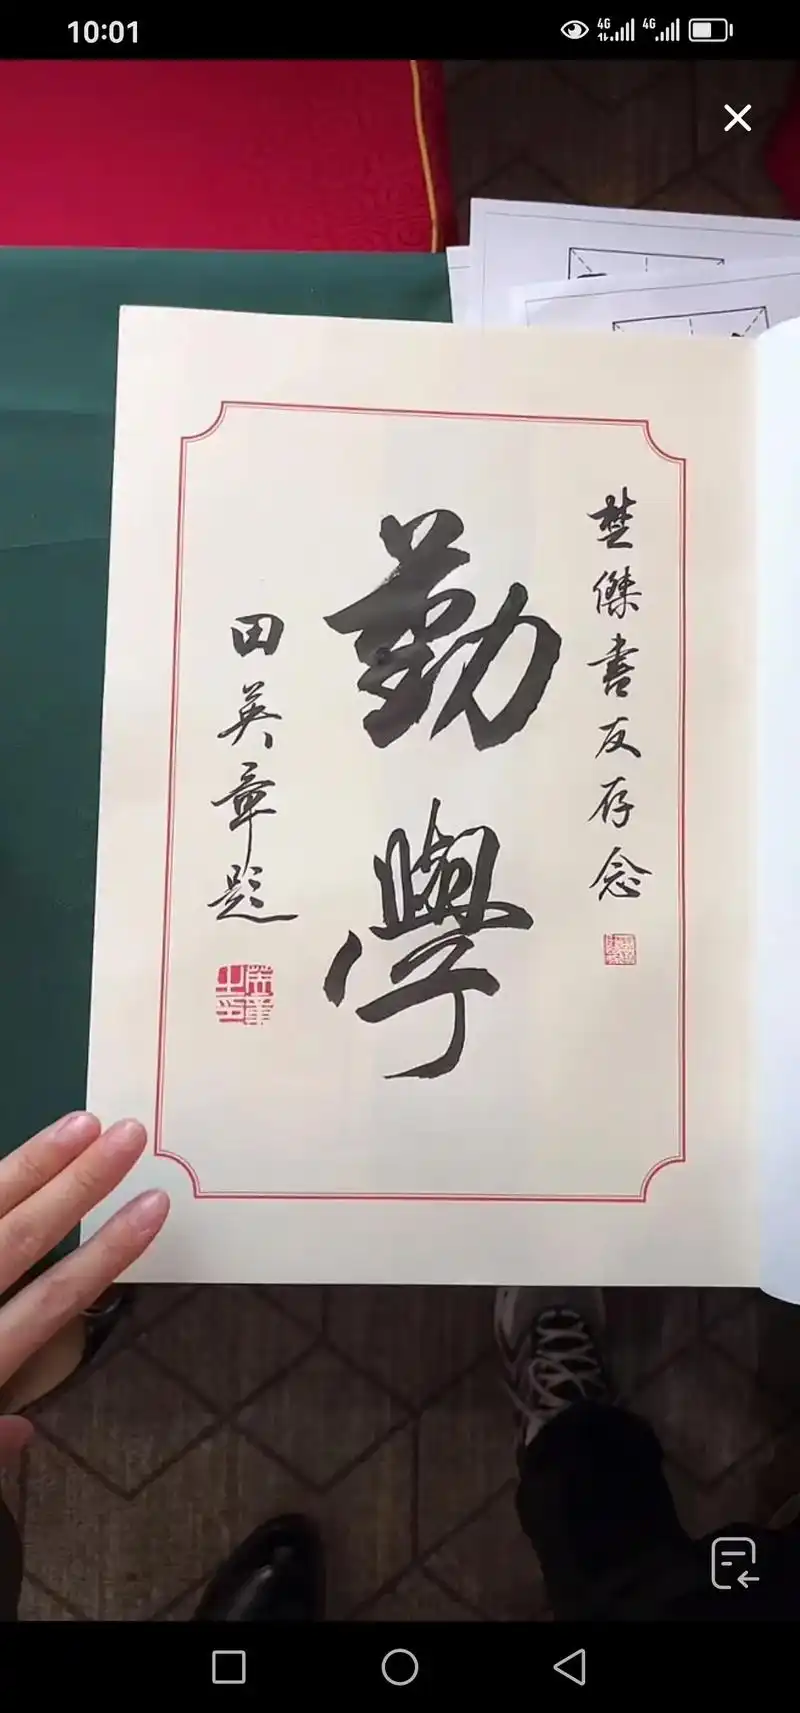 10:01
4G 4G
楚傑書友存念
勤學
田英章題